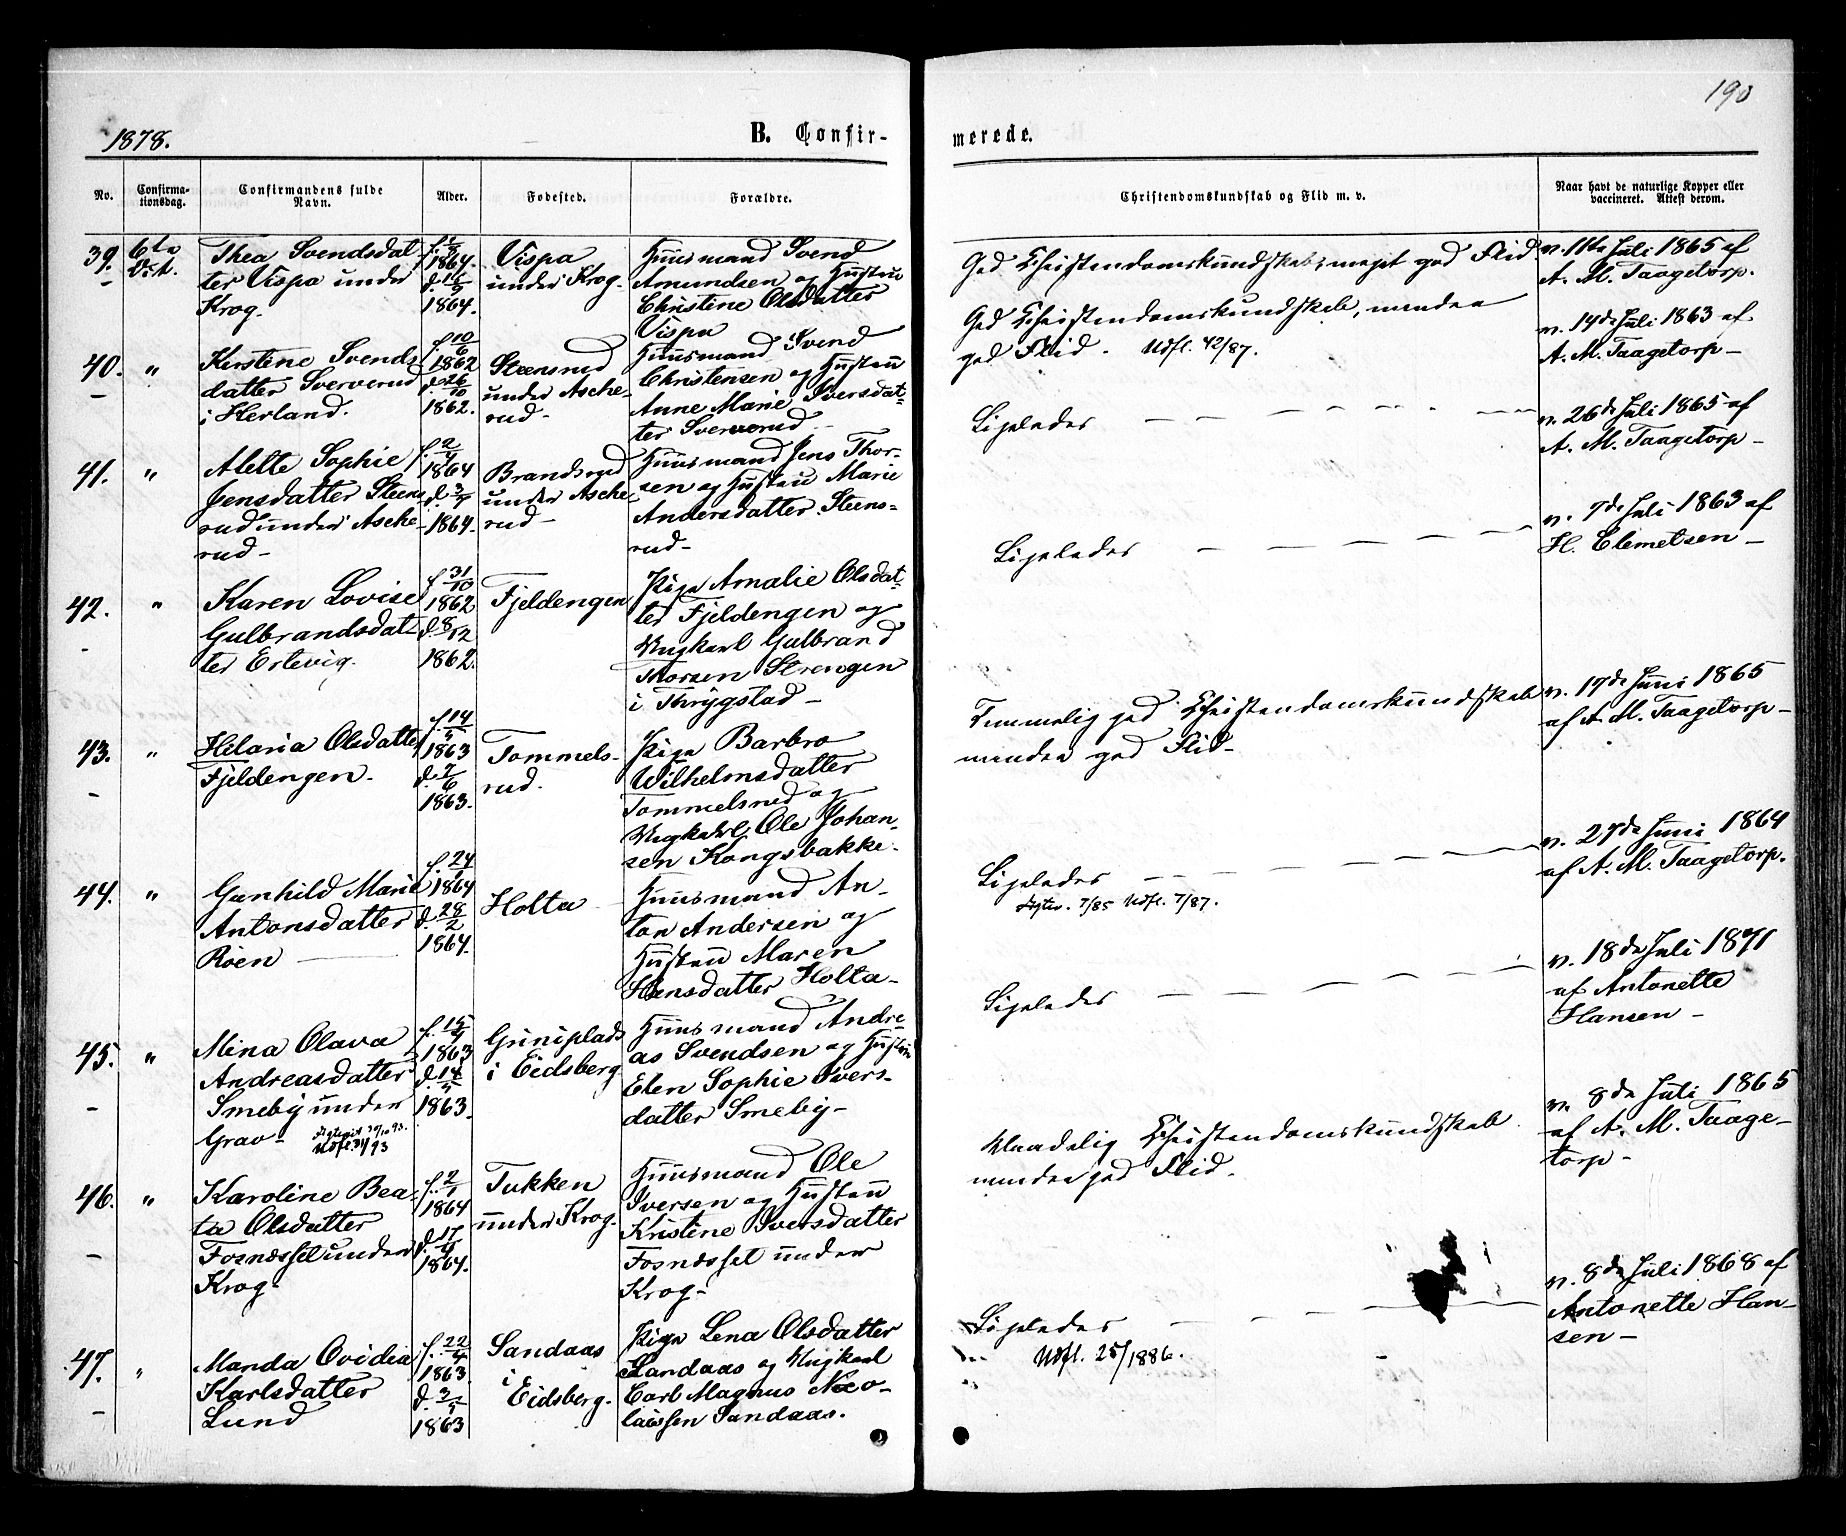 190
1878.
B. Confir-
merede.
No.
Confirma-
tionsdag.
Confirmandens fulde
Navn.
Alder.
Fødested.
Forældre.
Christendomskundskab og Flid m. v.
Naar havt de naturlige Kopper eller
vaccineret. Attest derom.
39.
Thea Svendsdat
ter Vispa under
Krog.
1864
1864.
Vispa
under Krog.
Huusmand Svend
Amundsen og Hustru
Christine Olsdatter
Vispa
God Christendomskundskab, meget god Flid
v. 11te Juli 1865 af
A. M. Taagetorp.
40. "
Kirstine Svends
datter Sververud
i Herland.
f. 10/6
1862
d. 26/10
1862.
Steensrud
under Asche-
rud-
Huusmand Svend
Christensen og Hustru
Anne Marie Iversdat-
ter Sververud-
God Christendomskundskab, mindre
god Flid. Udfl. 42/87.
v. 14de Juli 1863 af
A. M. Taagetorp-
41. "
Alette Sophie
Jensdatter Steens
rud under Asche-
rud-
1864
1864.
Brandsrud
under Asche
rud-
Huusmand Jens Thor-
sen og Hustru Marie
Andersdatter Steens-
rud-
Ligeledes
v. 26de Juli 1865 af
A. M. Taagetorp-
42. "
Karen Lovise
Gulbrandsdat
ter Ertevig.
f. 31/10
1862
d. 8/12
1862.
Fjeldengen
Pige Amalie Olsdat-
ter Fjeldengen og
Ungkarl Gulbrand
Thorsen Strengen
i Thrygstad-
Ligeledes
v. 7de Juli 1863 af
H. Clemetsen-
43. "
Hilaria Olsdatter
Fjeldengen-
f. 14/5
1863
d. 7/6
1863.
Tommels-
rud.
Pige Barbro
Wilhelmsdatter
Tommelsrud og
Ungkarl Ole Johan-
sen Kongsbakke-
Temmelig god Christendomskundskab
mindre god Flid-
v. 17de Juni 1865
af A. M. Taagetorp-
44. "
Gunhild Marie
Antonsdatter
Röen
f. 24/1
1864
d. 28/2
1864.
Holta
Huusmand An-
ton Andersen og
Hustru Maren
Hansdatter Holta-
Ligeledes
7/85 Udfl. 7/87.
v. 27de Juni 1864
af A. M. Taagetorp.
45. "
Mina Olava
Andreasdatter
Smeby under
Grav-
f. 15/4
1863
1863.
Griniplads
i Eidsberg
Huusmand Andre-
as Svendsen og Hustru
Elen Sophie Ivers-
datter Smeby-
Ligeledes
v. 18de Juli 1871
af Antonette
Hansen-
46. "
Karoline Bea-
ta Olsdatter
Fosnæsset under
Krog-
f. 2/1
1864
1864.
Tukken
under Krog.
Huusmand Ole
Iversen og Hustru
Kristine Iversdatter
Fosnæsset under
Krog-
Maadelig Christendomskundskab
mindre god Flid.
v. 8de Juli 1865
af A. M. Taage-
torp-
47. "
Manda Ovidia
Karlsdatter
Lund
f. 22/4
1863
d. 3/5
1863
Sandaas
i
Eidsberg.
Pige Lena Olsdatter
Sandaas og Ungkarl
Carl Magnus Nico-
laissen Sandaas.
Ligeledes
Udfl. 25/1886.
v. 8de Juli 1868 af
Antonette Han-
sen-